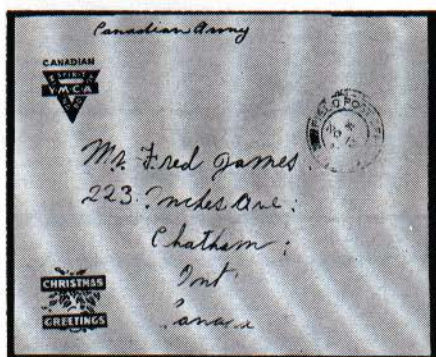 Canadian Army
CANADIAN
SPIRIT
YMCA
FIELD POST OFF
Mr. Fred James.
223 Inches Ave:
Chatham:
Ont
Canada
CHRISTMAS
GREETINGS